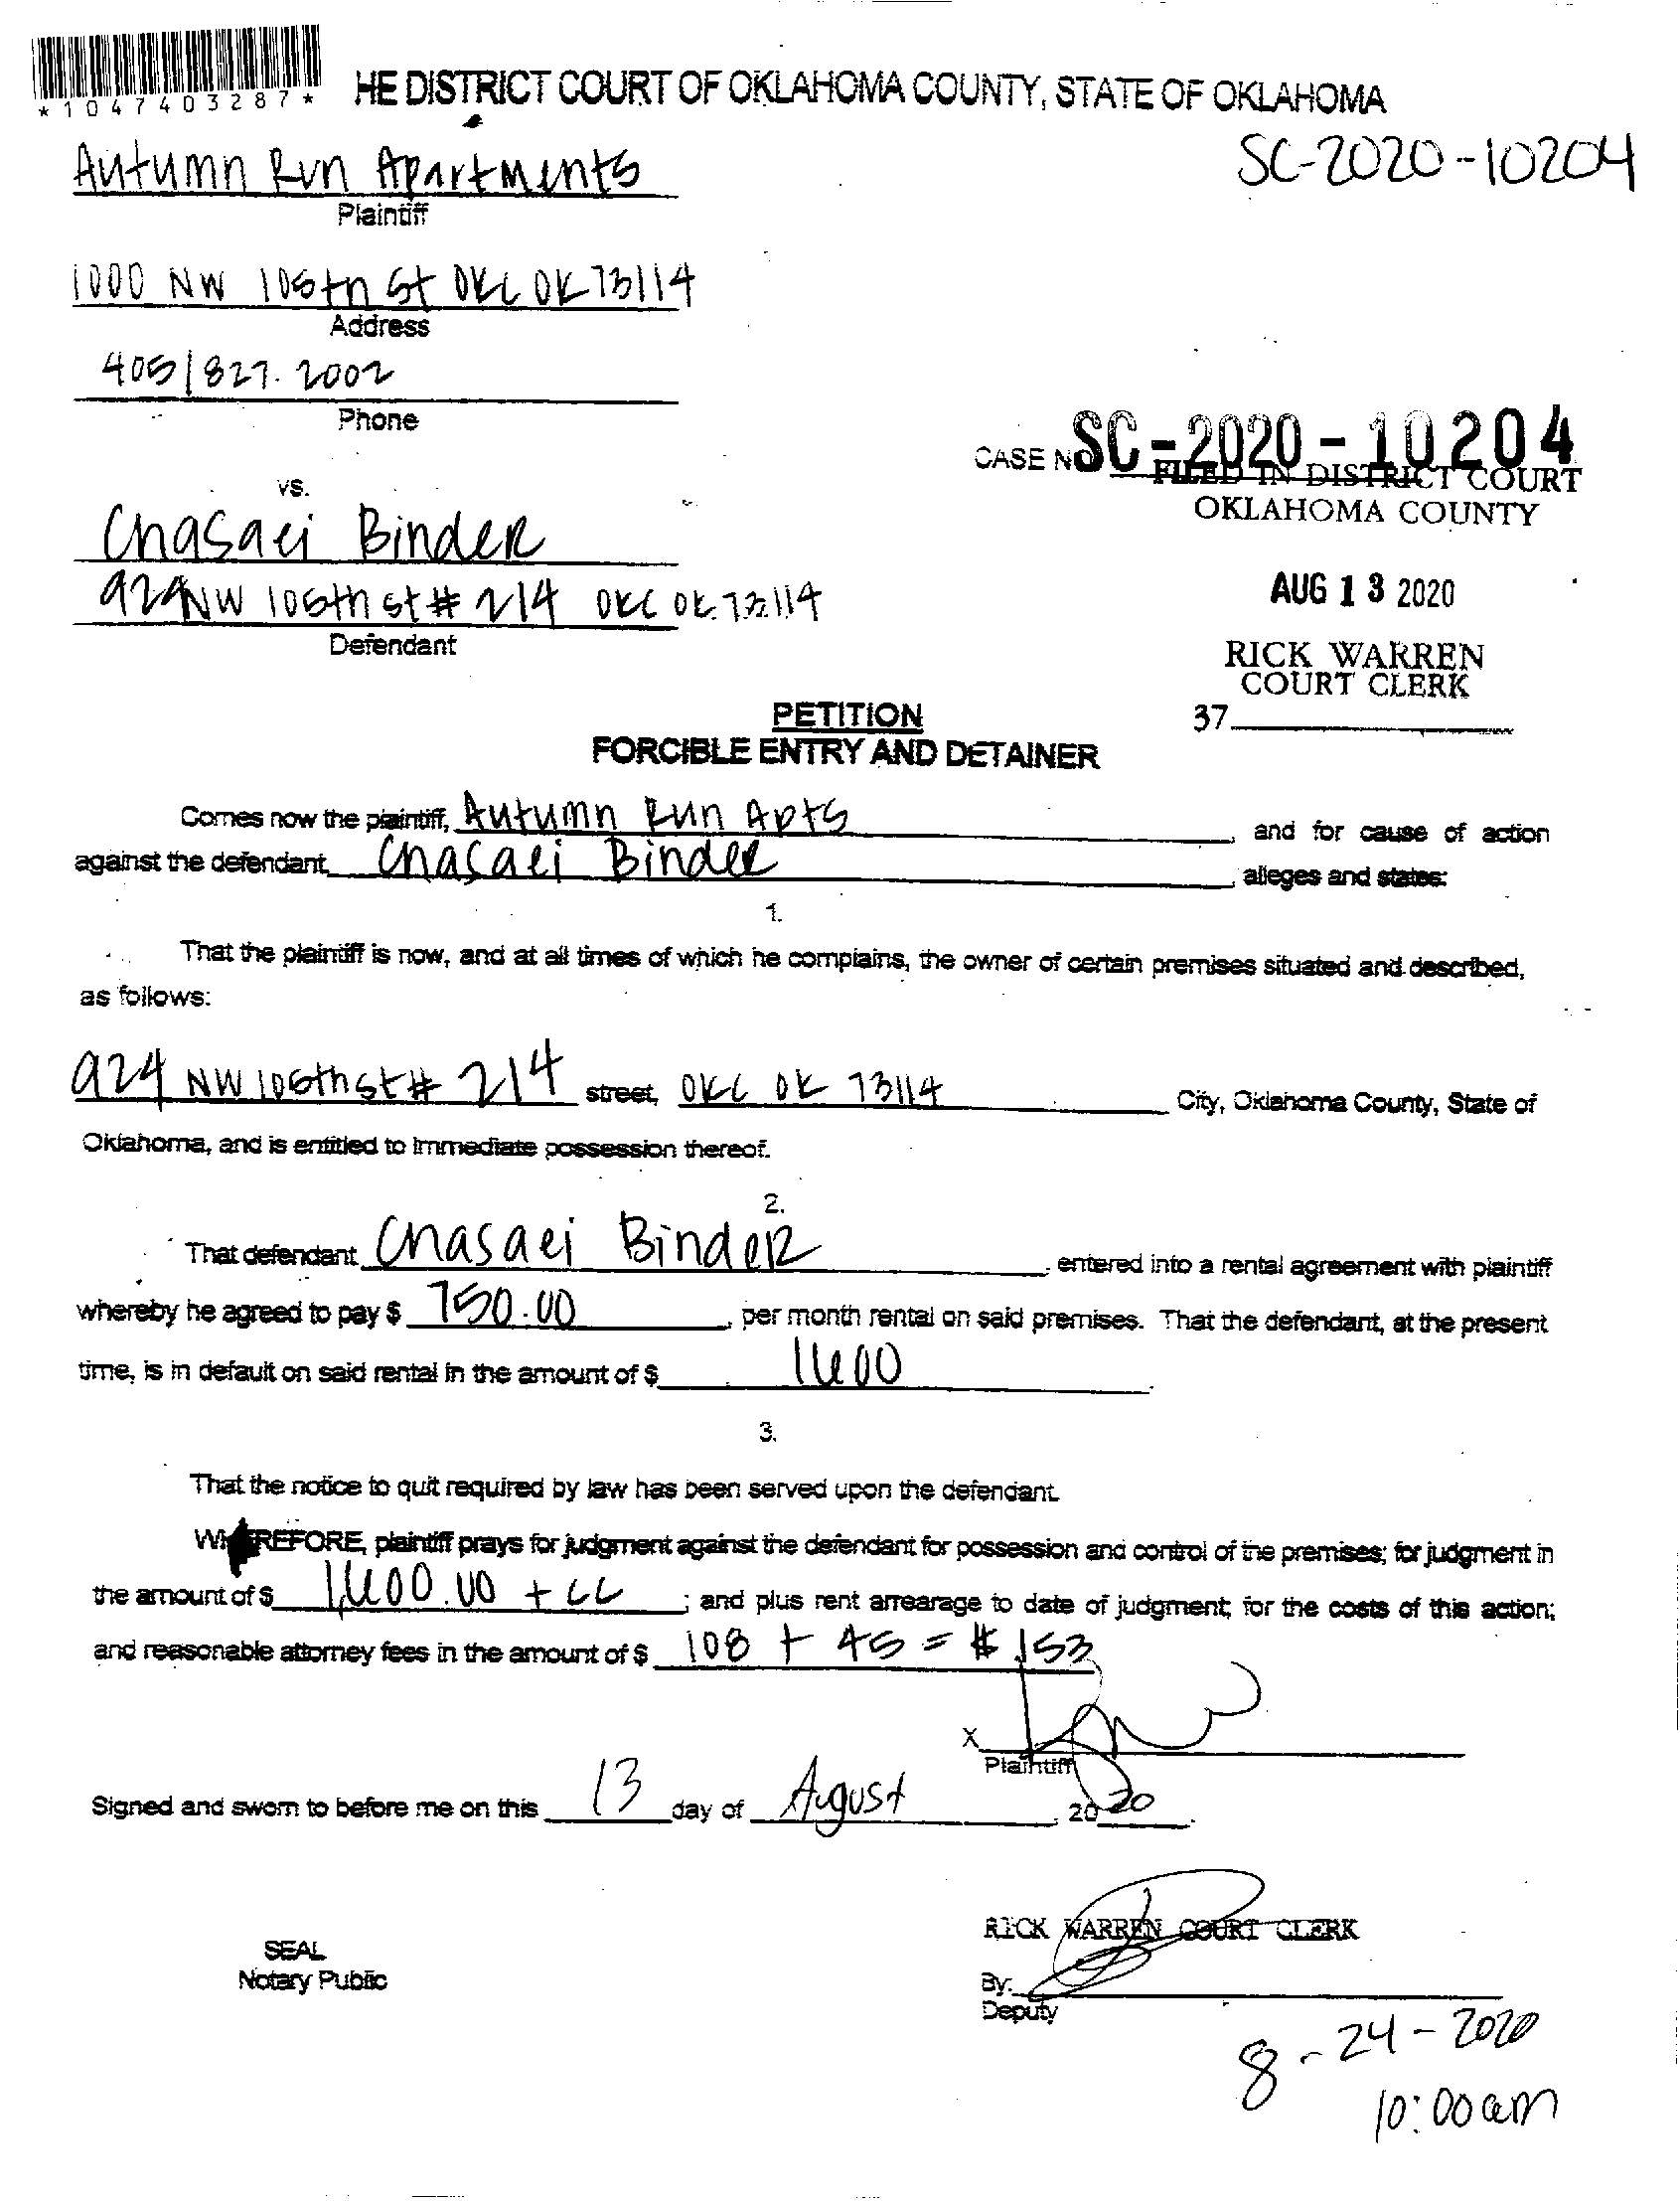 *1047403287*
HE DISTRICT COURT OF OKLAHOMA COUNTY, STATE OF OKLAHOMA
SC-2020-10204
Autumn Run Apartments
Plaintiff
1000 NW 105th St OKC OK 73114
Address
405/827.2002
Phone
CASE NO SC-2020-10204
FILED IN DISTRICT COURT
OKLAHOMA COUNTY
vs.
Chasaei Binder
924 NW 106th st # 214 OKC OK 73114
Defendant
AUG 13 2020
RICK WARREN
COURT CLERK
37
PETITION
FORCIBLE ENTRY AND DETAINER
Comes now the plaintiff, Autumn Run Apts, and for cause of action
against the defendant, Chasaei Binder, alleges and states:
1.
That the plaintiff is now, and at all times of which he complains, the owner of certain premises situated and described,
as follows:
924 NW 106th st # 214 street, OKC OK 73114 City, Oklahoma County, State of
Oklahoma, and is entitled to immediate possession thereof.
2.
That defendant Chasaei Binder, entered into a rental agreement with plaintiff
whereby he agreed to pay $ 750.00, per month rental on said premises. That the defendant, at the present
time, is in default on said rental in the amount of $ 1600.
3.
That the notice to quit required by law has been served upon the defendant.
WHEREFORE, plaintiff prays for judgment against the defendant for possession and control of the premises; for judgment in
the amount of $ 1,600.00 + CC; and plus rent arrearage to date of judgment; for the costs of this action;
and reasonable attorney fees in the amount of $ 108 + 45 = $ 153
X
Plaintiff
Signed and sworn to before me on this 13 day of August, 2020.
RICK WARREN COURT CLERK
SEAL
Notary Public
By:
Deputy
8-24-2020
10:00am